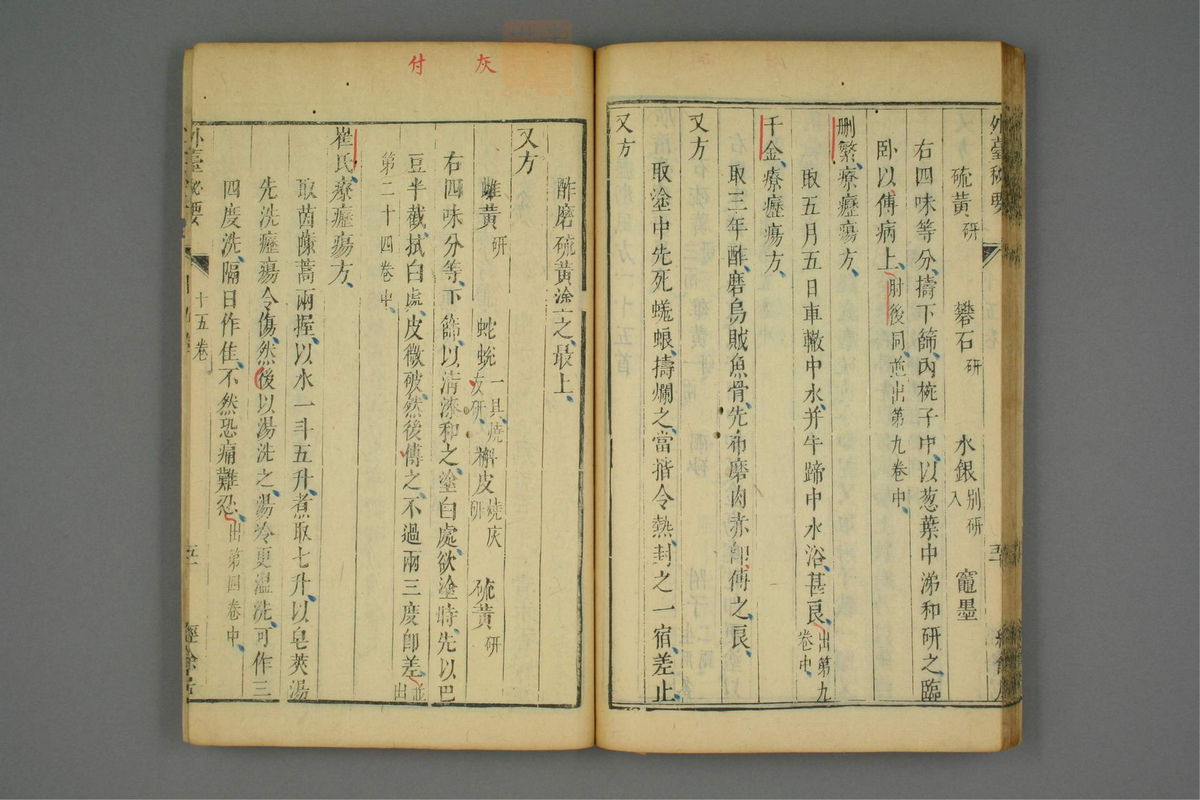 外臺秘要
硫黃研 礬石研 水銀別研入 竈墨
右四味等分擣下篩內椀子中以葱葉中涕和研之臨
卧以傅病上肘後同並出第九卷中
刪繁療癧瘍方
取五月五日車轍中水并牛蹄中水浴甚良出第九卷中
千金療癧瘍方
取三年酢磨烏賊魚骨先布磨肉赤卽傅之良
又方
取塗中先死蜣蜋擣爛之當揩令熱封之一宿差止
又方
灰
付
酢磨硫黃塗之最上
又方
雄黃研 蛇蛻一具燒灰研 槲皮燒灰研 硫黃研
右四味分等下篩以清漆和之塗白處欲塗時先以巴
豆半截拭白處皮微破然後傅之不過兩三度卽差並出
第二十四卷中
崔氏療癧瘍方
取茵蔯蒿兩握以水一斗五升煮取七升以皂莢湯
先洗癧瘍令傷然後以湯洗之湯冷更溫洗可作三
四度洗隔日作佳不然恐痛難忍出第四卷中
外臺秘要
十五卷